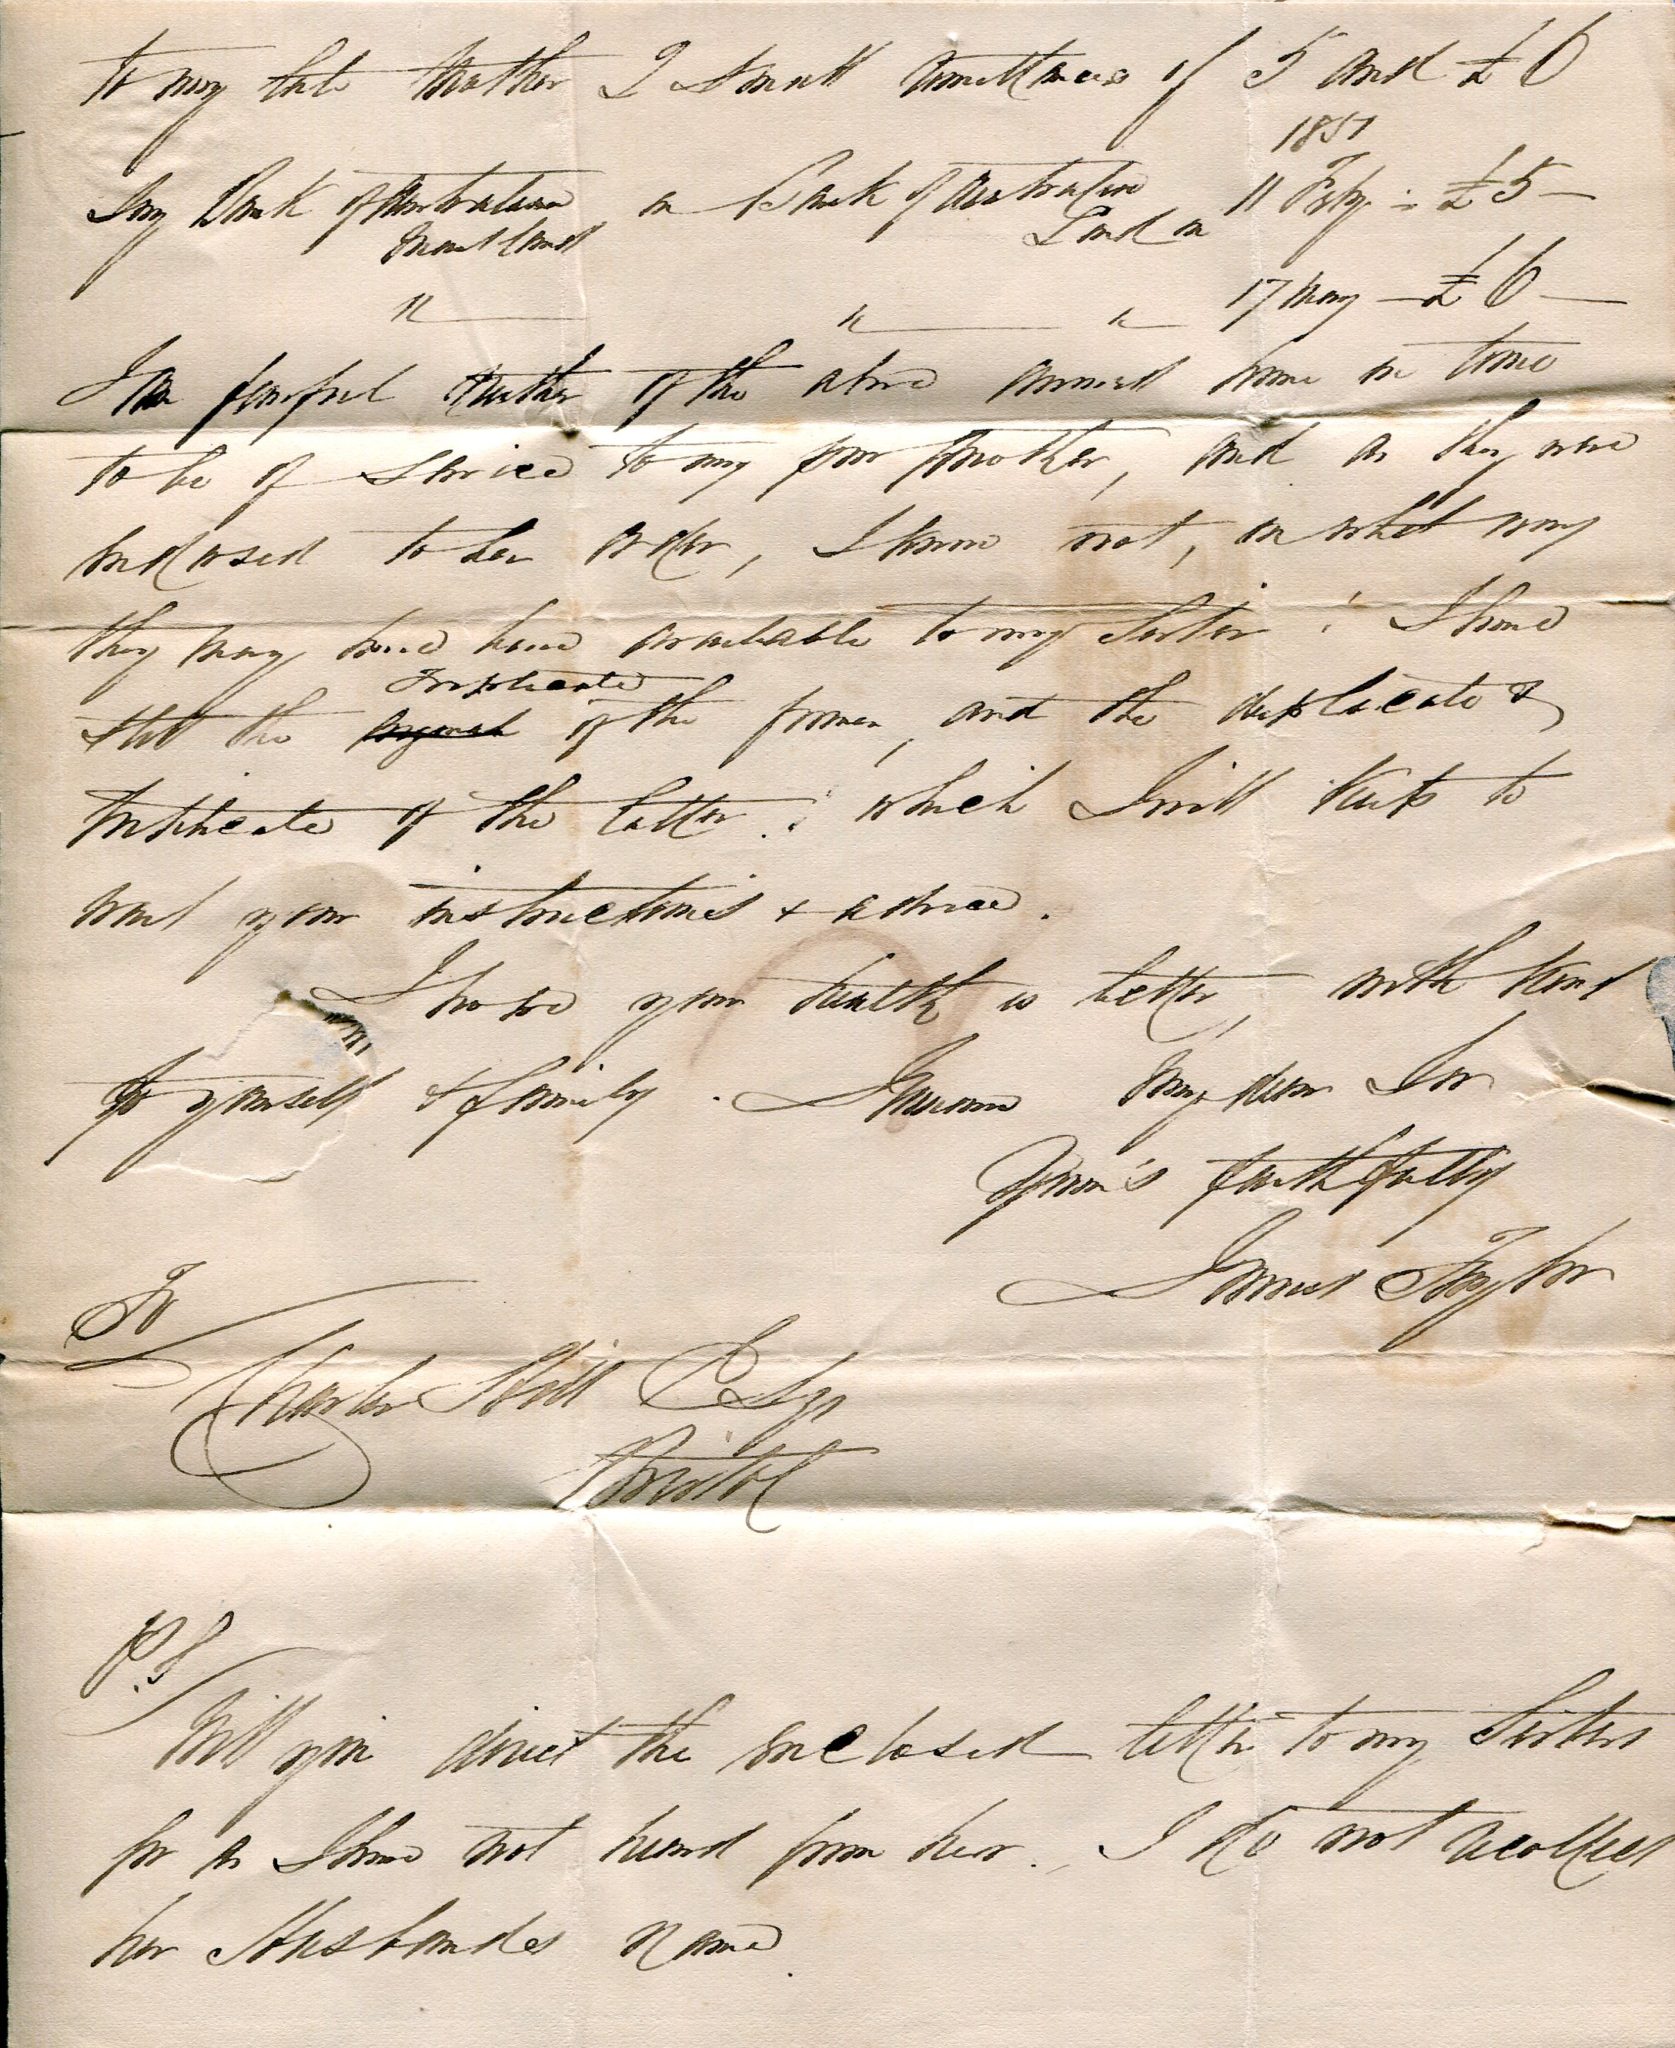 to my late Mother 2 small remittances of 5 and £6
1851
Bank of Australasia on Bank of Australasia 11 Feby - £5 -
Maitland London
" " " 17 May - £6 -
I am fearful neither of the above arrived home in time
to be of service to my poor Mother, and as they were
endorsed to her order, I know not, in what way
they may have been available to my Sister! I have
Triplicate
still the of the former, and the duplicate &
triplicate of the latter: which I will keep to
wait your instructions & advice.
I hope your health is better, with kind
to yourself & family. I remain My dear Sir
Your's faithfully
James Taylor
To
Charles Hill Esqr
Bristol
P.S
Will you direct the enclosed letter to my Sister
for as I have not heard from her, I do not recollect
her Husbands name.